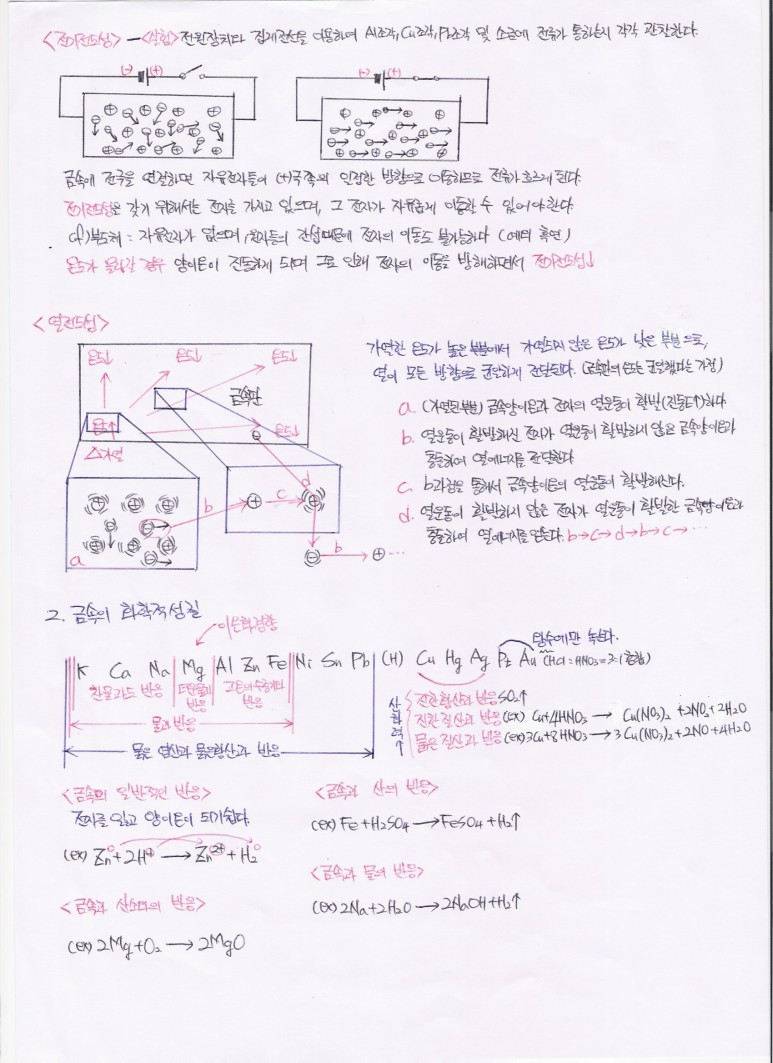 <전기전도성> - <실험> 전원장치나 집게전선을 이용하여 Al조각, Cu조각, Pb조각 및 소금에 전류가 통하는지 각각 관찰한다.
(-) (+) (-) (+)
금속에 전극을 연결하면 자유전자들이 (+)극쪽의 일정한 방향으로 이동하므로 전류가 흐르게 된다.
전기전도성을 갖기 위해서는 전자를 가지고 있으며, 그 전자가 자유롭게 이동할 수 있어야 한다.
cf) 부도체 : 자유전자가 없으며, 원자들의 간섭때문에 전자의 이동도 불가능하다 (예외 흑연)
온도가 올라갈 경우 양이온이 진동하게 되며 그로 인해 전자의 이동을 방해하면서 전기전도성↓
<열전도성>
온도↓ 온도↓ 온도↓
금속판
온도↑ 온도↓
△가열
a b c d
b
가열한 온도가 높은 부분에서 가열되지 않은 온도가 낮은 부분으로,
열이 모든 방향으로 균일하게 전달된다. (금속판의 온도는 균일했다는 가정)
a. (가열된부분) 금속양이온과 전자의 열운동이 활발(진동E↑)하다
b. 열운동이 활발해진 전자가 열운동이 활발하지 않은 금속양이온과
충돌하여 열에너지를 전달한다
c. b과정을 통해서 금속양이온의 열운동이 활발해진다.
d. 열운동이 활발하지 않은 전자가 열운동이 활발한 금속양이온과
충돌하여 열에너지를 얻는다. b→c→d→b→c→…
2. 금속의 화학적성질
이온화경향
왕수에만 녹는다.
K Ca Na Mg Al Zn Fe Ni Sn Pb (H) Cu Hg Ag Pt Au (HCl : HNO₃ = 3:1 혼합)
찬물과도 반응
뜨거운물과 반응
고온의 수증기와 반응
물과 반응
묽은 염산과 묽은황산과 반응
산화력↑
진한황산과 반응 SO₂↑
진한질산과 반응 (ex) Cu+4HNO₃ → Cu(NO₃)₂ + 2NO₂ + 2H₂O
묽은 질산과 반응 (ex) 3Cu+8HNO₃ → 3Cu(NO₃)₂ + 2NO + 4H₂O
<금속의 일반적인 반응>
전자를 잃고 양이온이 되기쉽다.
(ex) Zn⁰ + 2H⁺ → Zn²⁺ + H₂⁰
<금속과 산소와의 반응>
(ex) 2Mg + O₂ → 2MgO
<금속과 산의 반응>
(ex) Fe + H₂SO₄ → FeSO₄ + H₂↑
<금속과 물의 반응>
(ex) 2Na + 2H₂O → 2NaOH + H₂↑